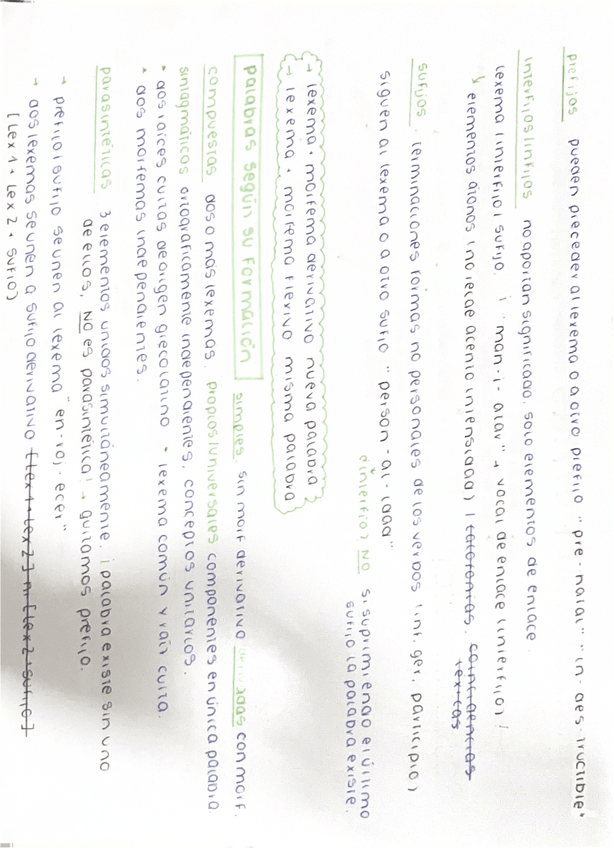 prefijos pueden preceder al lexema o a otro prefijo "pre-natal" "in-des-tructible"
interfijos/infijos no aportan significado, solo elementos de enlace.
lexema / interfijo / sufijo. "man-i-atar" → vocal de enlace (interfijo) /
elementos átonos (no recae acento intensidad) /
sufijos. terminaciones formas no personales de los verbos (inf. ger, participio)
siguen al lexema o a otro sufijo "person-al-idad"
¿interfijo? NO si suprimiendo el último
sufijo la palabra existe.
→ lexema + morfema derivativo nueva palabra
→ lexema + morfema flexivo misma palabra
palabras según su formación simples sin morf derivativo derivadas con morf.
compuestas dos o más lexemas. propios/universales componentes en única palabra
sintagmáticos ortograficamente independientes, conceptos unitarios.
• dos raíces cultas de origen grecolatino • lexema común y raíz culta.
• dos morfemas independientes.
parasintéticas 3 elementos unidos simultáneamente. ¡palabra existe sin uno
de ellos, NO es parasintética! → quitamos prefijo.
→ prefijo / sufijo se unen al lexema "en-roj-ecer"
→ dos lexemas se unen a sufijo derivativo [lex 1 + lex 2] n [lex 2 + sufijo]
[lex 1 + lex 2 + sufijo]